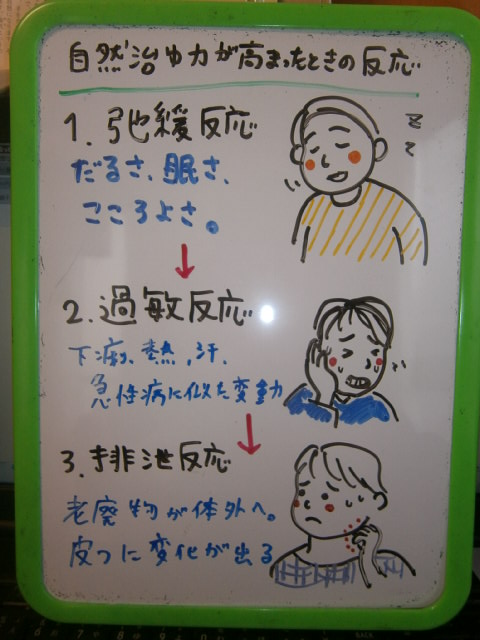 自然治ゆ力が高まったときの反応
1. 弛緩反応
だるさ、眠さ、
こころよさ。
2. 過敏反応
下痢、熱、汗、
急性病に似た変動
3. 排泄反応
老廃物が体外へ。
皮フに変化が出る